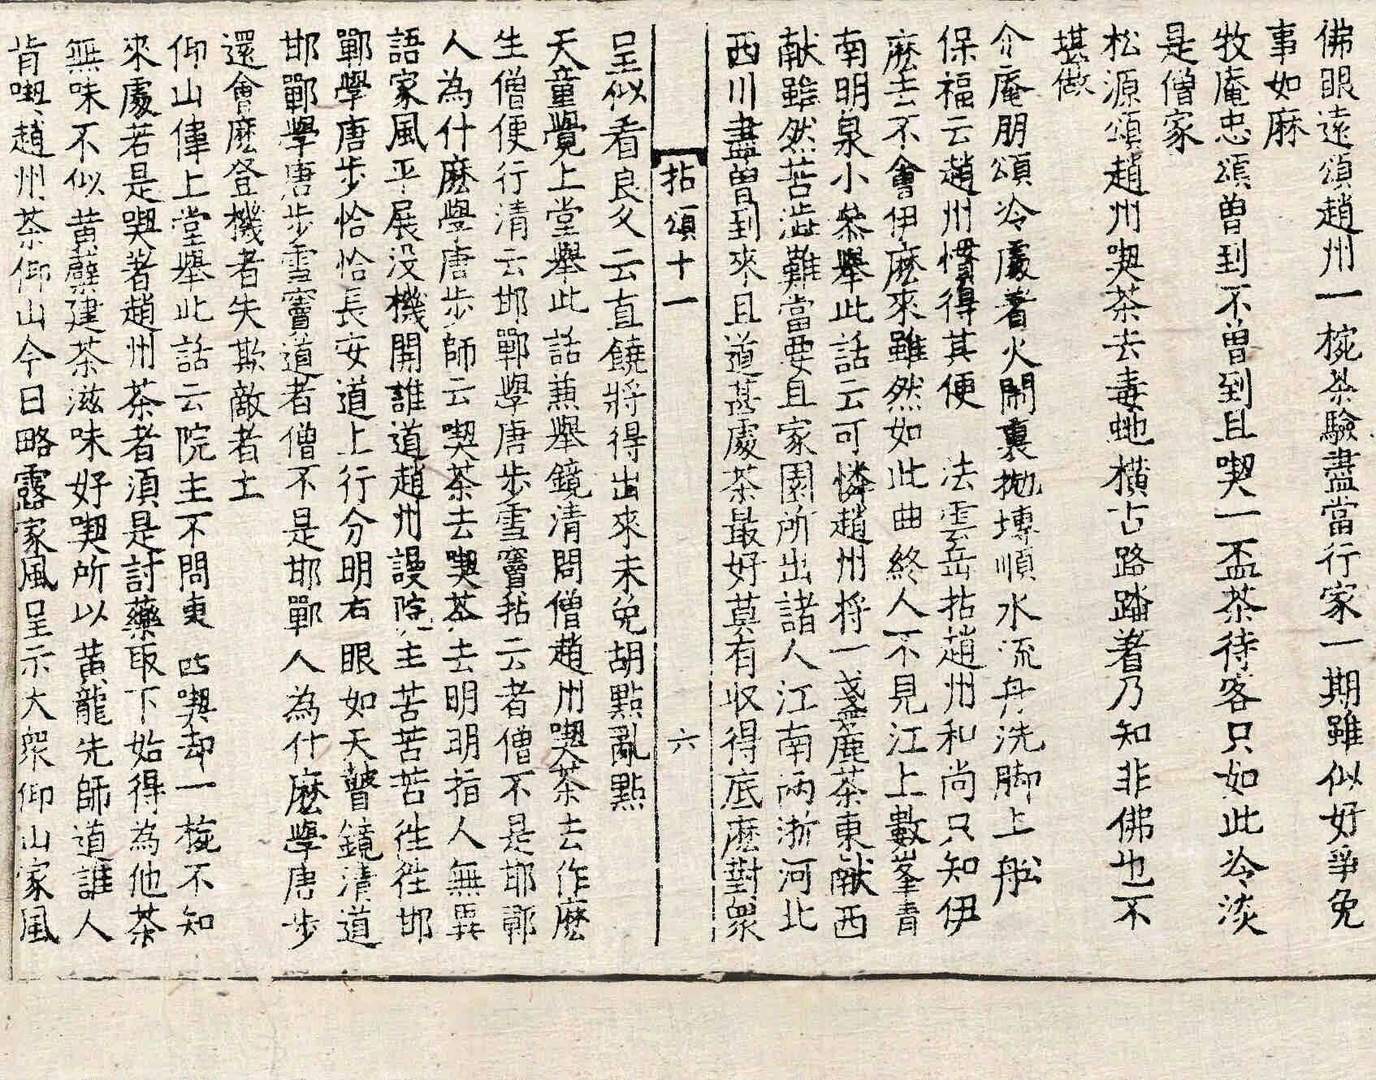 佛眼遠頌趙州一椀茶驗盡當行家一期雖似好爭免
事如麻
牧庵忠頌曽到不曽到且喫一盃茶待客只如此冷淡
是僧家
松源頌趙州喫茶去毒虵橫古路踏著乃知非佛也不
堪做
介庵朋頌冷處著火閙裏抛塼順水流舟洗脚上舩
保福云趙州慣得其便　法雲岳拈趙州和尚只知伊
麽去不會伊麽來雖然如此曲終人不見江上數峯青
南明泉小叅舉此話云可憐趙州将一盞麁茶東献西
献雖然苦澁難當要且家園所出諸人江南兩浙河北
西川盡曽到來且道甚處茶最好莫有収得底麽對衆
拈頌十一　六
呈似看良久云直饒將得出來未免胡點亂點
天童覺上堂舉此話兼舉鏡清問僧趙州喫茶去作麽
生僧便行清云邯鄲學唐步雪竇拈云者僧不是邯鄲
人為什麽學唐步師云喫茶去喫茶去明明指人無異
語家風平展没機關誰道趙州謾院主苦苦苦徃徃邯
鄲學唐步恰恰長安道上行分明有眼如天瞽鏡清道
邯鄲學唐步雪竇道者僧不是邯鄲人為什麽學唐步
還會麽登機者失欺敵者亡
仰山偉上堂舉此話云院主不問東西喫却一椀不知
來處若是喫著趙州茶者須是討藥取下始得為他茶
無味不似黃蘗建茶滋味好喫所以黃龍先師道誰人
肯喫趙州茶仰山今日略露家風呈示大衆仰山家風